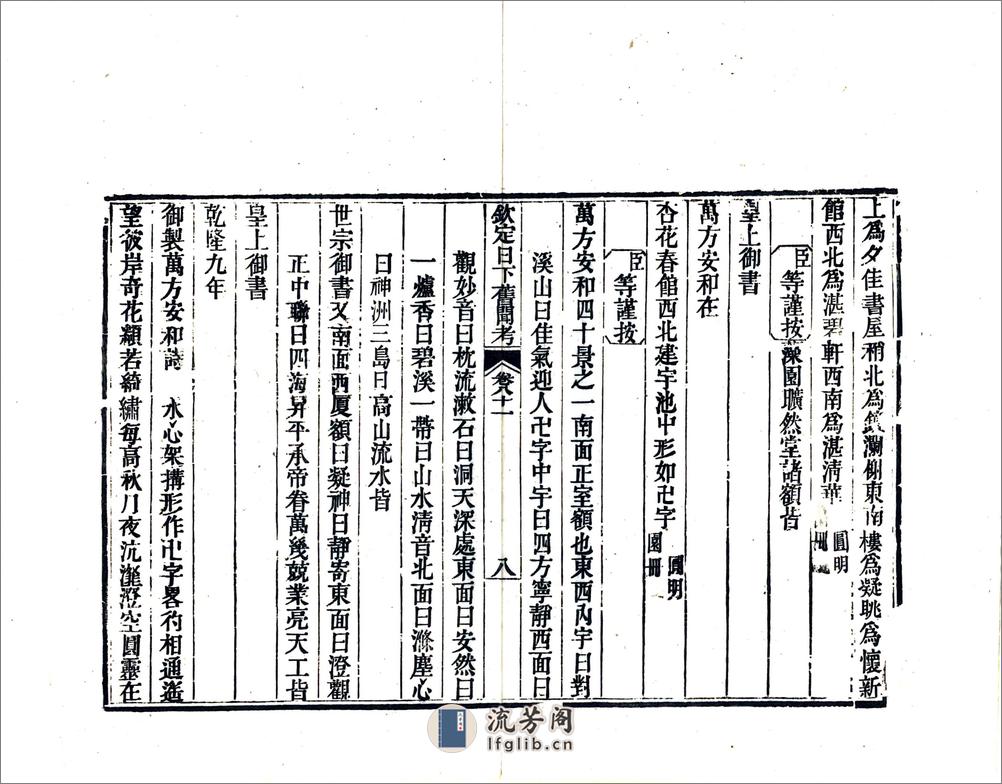 上爲夕佳書屋稍北爲鏡瀾榭東南樓爲疑眺爲懷新
館西北爲湛碧軒西南爲湛清華圓明
園冊
臣等謹按深園曠然堂諸額皆
皇上御書
萬方安和在
杏花春館西北建宇池中形如卍字圓明
園冊
臣等謹按
萬方安和四十景之一南面正室額也東西內宇曰對
溪山曰佳氣迎人卍字中宇曰四方寧靜西面曰
欽定日下舊聞考 卷八十一 八
觀妙音曰枕流漱石曰洞天深處東面曰安然曰
一爐香曰碧溪一帶曰山水清音北面曰滌塵心
曰神洲三島曰高山流水皆
世宗御書又南面西厦額曰凝神曰靜寄東面曰澄觀
正中聯曰四海昇平承帝眷萬幾兢業亮天工皆
皇上御書
乾隆九年
御製萬方安和詩 水心架搆形作卍字畧彴相通遙
望彼岸奇花纈若綺繡每高秋月夜沆瀣澄空圓靈在
流芳阁
lfglib.cn